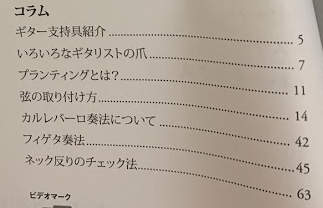 コラム
ギター支持具紹介 5
いろいろなギタリストの爪 7
プランティングとは? 11
弦の取り付け方 14
カルレバーロ奏法について 42
フィゲタ奏法 45
ネック反りのチェック法 63
ビデオマーク